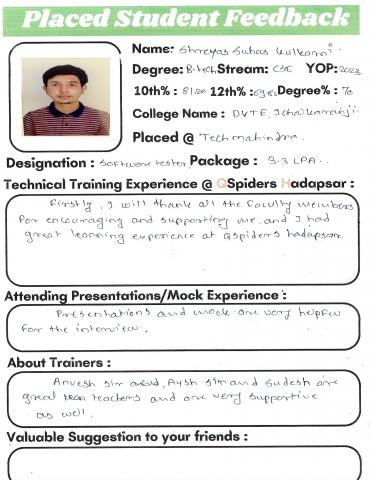 Placed Student Feedback
Name: Shreyas Suhas Kulkarni.
Degree: B.tech. Stream: CSE YOP: 2023
10th% : 81.20 12th% : Degree% : 70
College Name : DKTE, Ichalkaranji.
Placed @ Techmahindra.
Designation : Software tester. Package : 3.3 LPA.
Technical Training Experience @ QSpiders Hadapsar :
Firstly, I will thank all the faculty members
for encouraging and supporting me. and I had
great learning experience at Qspiders hadapsar
Attending Presentations/Mock Experience :
Presentations and mock are very helpful
for the interview.
About Trainers :
Anvesh sir Aysh sir and Sudesh are
great teachers and are very supportive
as well.
Valuable Suggestion to your friends :